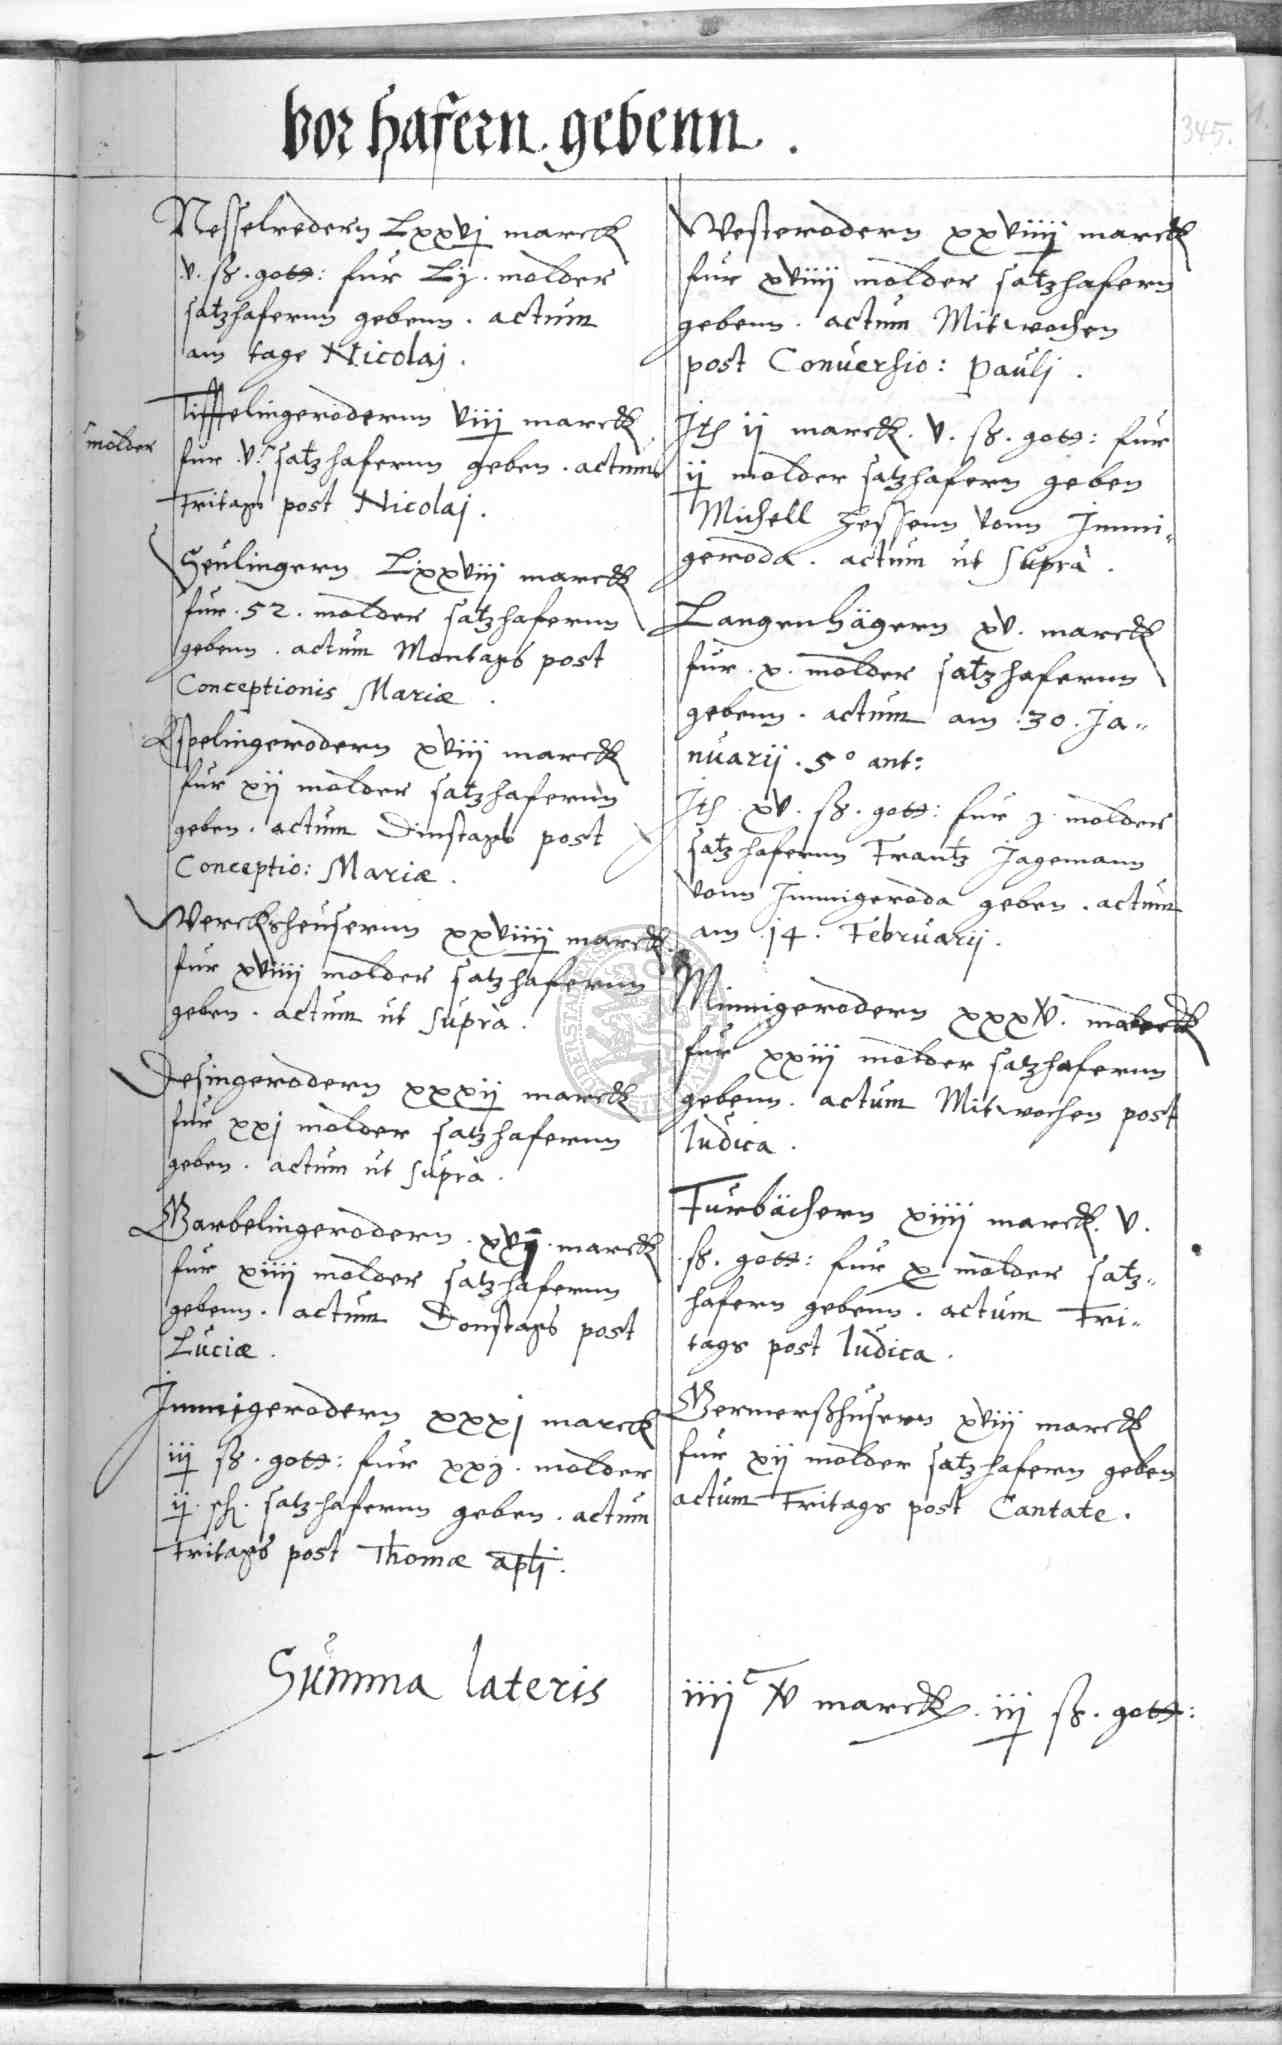 vor hafern gebenn.
345.
Nesselredern Lxxvj marck
v. ß. gott: fur Lj. molder
satzhafernn gebenn. actum
am tage Nicolaj.
Tifftelingerodernn viij marck
molder
fur v. satzhafernn geben. actum
Fritags post Nicolaj.
Seulingern Lxxviij marck
fur 52. molder satzhafernn
gebenn. actum Montags post
Conceptionis Mariæ.
Espelingerodern xviij marck
fur xij molder satzhafernn
geben. actum Dinstags post
Conceptio: Mariæ.
Wercksheusernn xxviiij marck
fur xviiij molder satzhafernn
geben. actum ut suprà.
Desingerodern xxxij marck
fur xxj molder satzhafernn
geben. actum ut suprà.
Warbelingerodern. xvj. marck
fur xiiij molder satzhafernn
gebenn. actum Donstags post
Luciæ.
Immigerodern xxxj marck
iij ß. gott: fur xxj. molder
ij. sch. satzhafernn geben. actum
Fritags post Thomæ apli.
Westerodern xxviiij marck
fur xviiij molder satzhafern
gebenn. actum Mitwochen
post Conversio: Pauli.
Ith ij marck. v. ß. gott: fur
ij molder satzhafern geben
Michell Hessenn vonn Immi„
geroda. actum ut suprà.
Langenhägern xv. marck
fur. x. molder satzhafernn
gebenn. actum am 30. Ja„
nuarij. 5º ant:
Ith xv. ß. gott: fur j. molder
satzhafernn Frantz Jagemann
vonn Immigeroda geben. actum
am 14. Februarij.
Minnigerodern xxxv. marck
fur xxiij molder satzhafernn
gebenn. actum Mitwochen post
Iudica.
Furbächern xiiij marck. v.
ß. gott: fur x molder satz„
hafern gebenn. actum Fri„
tags post Iudica.
Germerßhusern xviij marck
fur xij molder satzhafern geben
actum Fritags post Cantate.
Summa lateris iiijc xv marck. iij ß. gott: